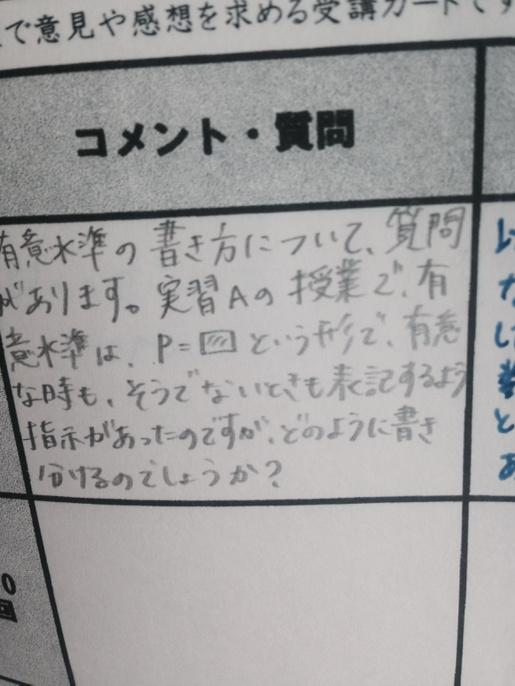 で意見や感想を求める受講カードです
コメント・質問
有意水準の書き方について、質問
があります。実習Aの授業で、有
意水準は、P=▨という形で、有意
な時も、そうでないときも表記するよう
指示があったのですが、どのように書き
分けるのでしょうか?
0
回